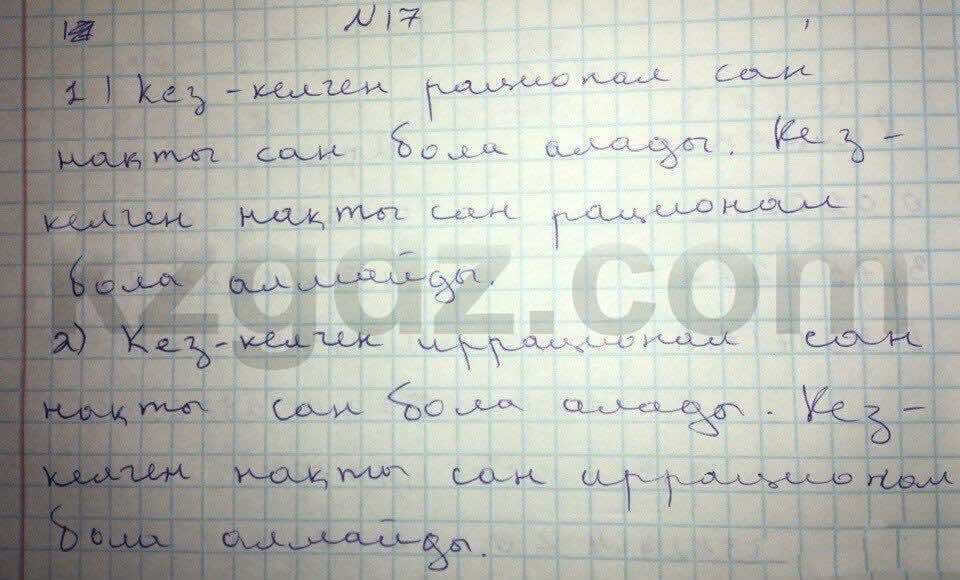 №17
1) Кез-келген рационал сан
нақты сан бола алады. Кез-
келген нақты сан рационал
бола алмайды.
2) Кез-келген иррационал сан
нақты сан бола алады. Кез-
келген нақты сан иррационал
бола алмайды.
kzgdz.com